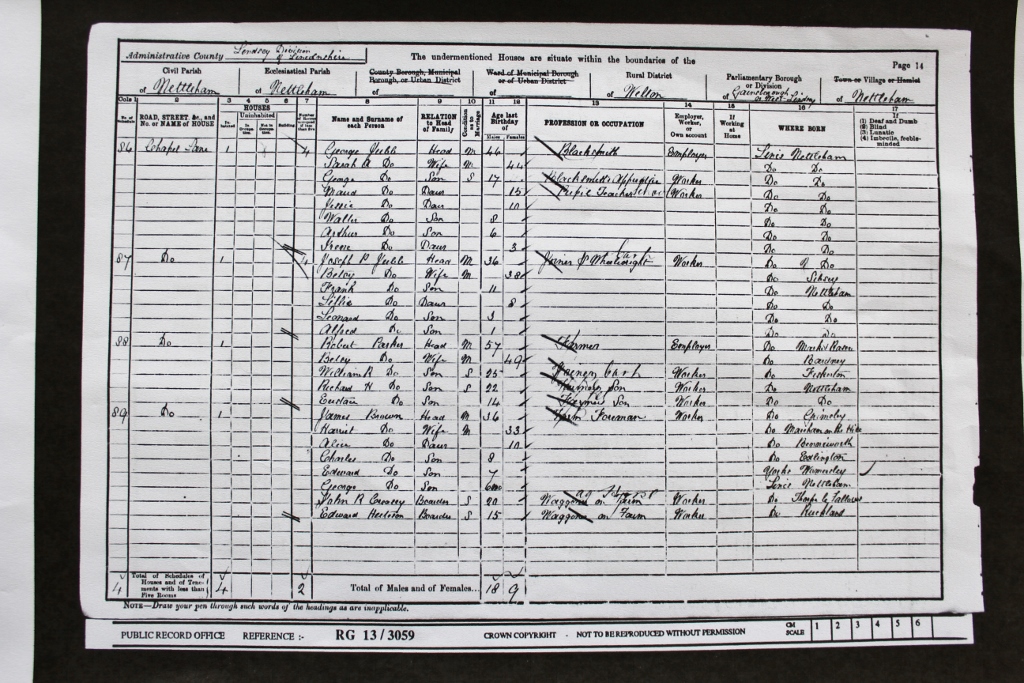 Administrative County Lindsey Division of Lincolnshire
The undermentioned Houses are situate within the boundaries of the
Page 14
Civil Parish
of Nettleham
Ecclesiastical Parish
of Nettleham
County Borough, Municipal Borough, or Urban District
of
Ward of Municipal Borough or of Urban District
of
Rural District
of Welton
Parliamentary Borough or Division
of Gainsborough or West Lindsey
Town or Village or Hamlet
of Nettleham
Cols 1 2 3 4 5 6 7 8 9 10 11 12 13 14 15 16 17
ROAD, STREET, &c., and No. or NAME of HOUSE
HOUSES
Uninhabited
Name and Surname of each Person
RELATION to Head of Family
Condition as to Marriage
Age last Birthday of
Males Females
PROFESSION OR OCCUPATION
Employer, Worker, or Own account
If Working at Home
WHERE BORN
If (1) Deaf and Dumb (2) Blind (3) Lunatic (4) Imbecile, feeble-minded
86 Chapel Lane 1 4 George Jubb Head M 46 Blacksmith Employer Lincs Nettleham
Sarah A Do Wife M 44 Do Do
George Do Son S 17 Blacksmith Apprentice Worker Do Do
Maud Do Daur 15 Pupil Teacher Worker Do Do
Jessie Do Daur 10 Do Do
Walter Do Son 8 Do Do
Arthur Do Son 6 Do Do
Irene Do Daur 3 Do Do
87 Do 1 4 Joseph P Jubb Head M 36 Joiner & Wheelwright Worker Do Do
Betsy Do Wife M 38 Do
Frank Do Son 11 Do Nettleham
Lillie Do Daur 8 Do Do
Leonard Do Son 3 Do Do
Alfred Do Son 1 Do Do
88 Do 1 Robert Parker Head M 57 Farmer Employer Do Market Rasen
Betsy Do Wife M 49 Do Bardney
William R Do Son S 25 Worker Do Fiskerton
Richard H Do Son S 22 Farmers Son Worker Do Nettleham
Do Son 14 Farmers Son Worker Do Do
89 Do 1 James Brown Head M 36 Farm Foreman Worker Do Grimsby
Harriet Do Wife M 33 Do Mareham on the Hill
Alice Do Daur 10 Do Benniworth
Charles Do Son 8 Do Edlington
Edward Do Son 7 Yorks Womersley
George Do Son 6m Lincs Nettleham
John R Boarder S 20 Waggoner on Farm Worker Do Thorpe le Fallows
Edward Boarder S 15 Waggoner on Farm Worker Do Ruckland
4 Total of Schedules of Houses and of Tenements with less than Five Rooms 4 2 Total of Males and of Females... 18 9
NOTE—Draw your pen through such words of the headings as are inapplicable.
PUBLIC RECORD OFFICE REFERENCE :- RG 13 / 3059 CROWN COPYRIGHT - NOT TO BE REPRODUCED WITHOUT PERMISSION CM SCALE 1 2 3 4 5 6